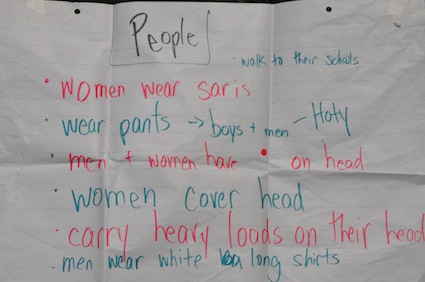 People
· walk to their schools
· women wear saris
· wear pants → boys + men - Hoty
· men + women have • on head
· women cover head
· carry heavy loads on their head
· men wear white long shirts